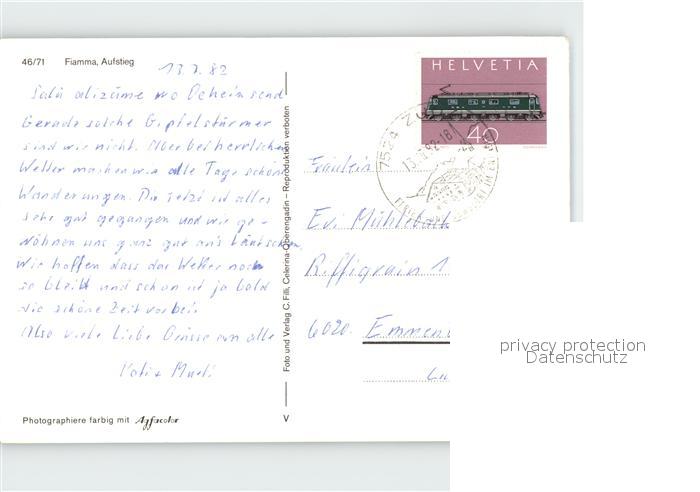 46/71 Fiamma, Aufstieg
13.7.82
Salü alizäme wo Deheim send
Gerade solche Gipfelstürmer
sind wir nicht. Aber bei herrlichem
Wetter machen wir alle Tage schöne
Wanderungen. Bis jetzt ist alles
sehr gut gegangen und wir ge-
wöhnen uns ganz gut ans
Wir hoffen dass das Wetter noch
so bleibt und schon ist ja bald
die schöne Zeit vorbei.
Also viele Liebe Grüsse an alle
Photographiere farbig mit Agfacolor
Foto und Verlag C. Filli, Celerina-Oberengadin – Reproduktion verboten
V
HELVETIA
40
7524 ZUOZ
13.7.82-18
Fräulein
Evi
6020 Emmen
Lu
privacy protection
Datenschutz